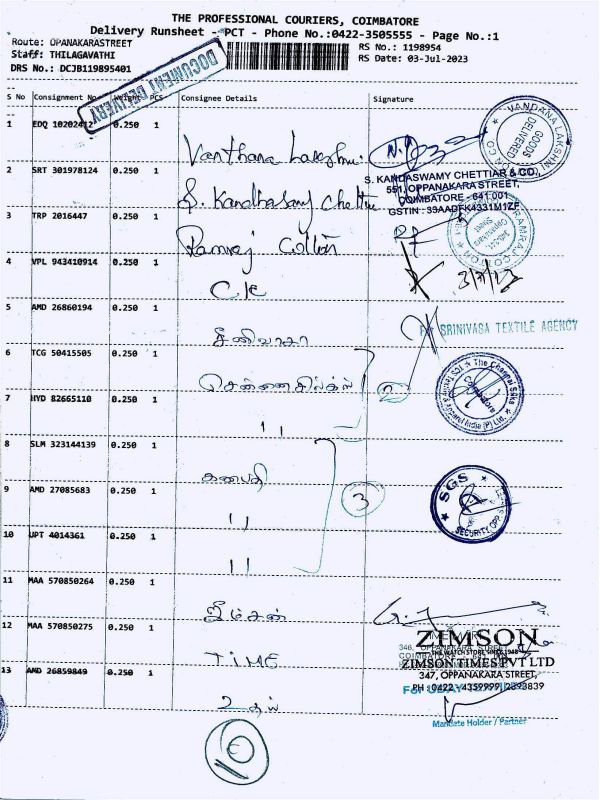 THE PROFESSIONAL COURIERS, COIMBATORE
Delivery Runsheet - PCT - Phone No.:0422-3505555 - Page No.:1
Route: OPANAKARASTREET
Staff: THILAGAVATHI
DRS No.: DCJB119895401
RS No.: 1198954
RS Date: 03-Jul-2023
DOCUMENT DELIVERY
S No Consignment No Weight PCS Consignee Details Signature
1 EDQ 10202412 0.250 1
Vanthana Lakshmi
VANDANA LAKSHMI
GOODS DELIVERED
2 SRT 301978124 0.250 1
S. Kandhasamy Chettiar
S. KANDASWAMY CHETTIAR & CO,
551, OPPANAKARA STREET,
COIMBATORE - 641 001
GSTIN : 33AADFK4331M1ZF
3 TRP 2016447 0.250 1
Ramraj Cotton
RAMRAJ COTTON
4 VPL 943410914 0.250 1
CK
3/7/23
5 AMD 26860194 0.250 1
சீனிவாசா
SRINIVASA TEXTILE AGENCY
6 TCG 50415505 0.250 1
சென்னைசில்க்ஸ்
2
The Chennai Silks
7 HYD 82665110 0.250 1
11
8 SLM 323144139 0.250 1
கணபதி
3
9 AMD 27085683 0.250 1
11
SGS
SECURITY
10 UPT 4014361 0.250 1
11
11 MAA 570850264 0.250 1
ஜிம்சன்
12 MAA 570850275 0.250 1
TIME
ZIMSON
THE WATCH STORE SINCE 1948
ZIMSON TIMES PVT LTD
347, OPPANAKARA STREET,
PH : 0422 - 4359999, 2393839
13 AMD 26859849 0.250 1
உதய்
Mandate Holder / Partner